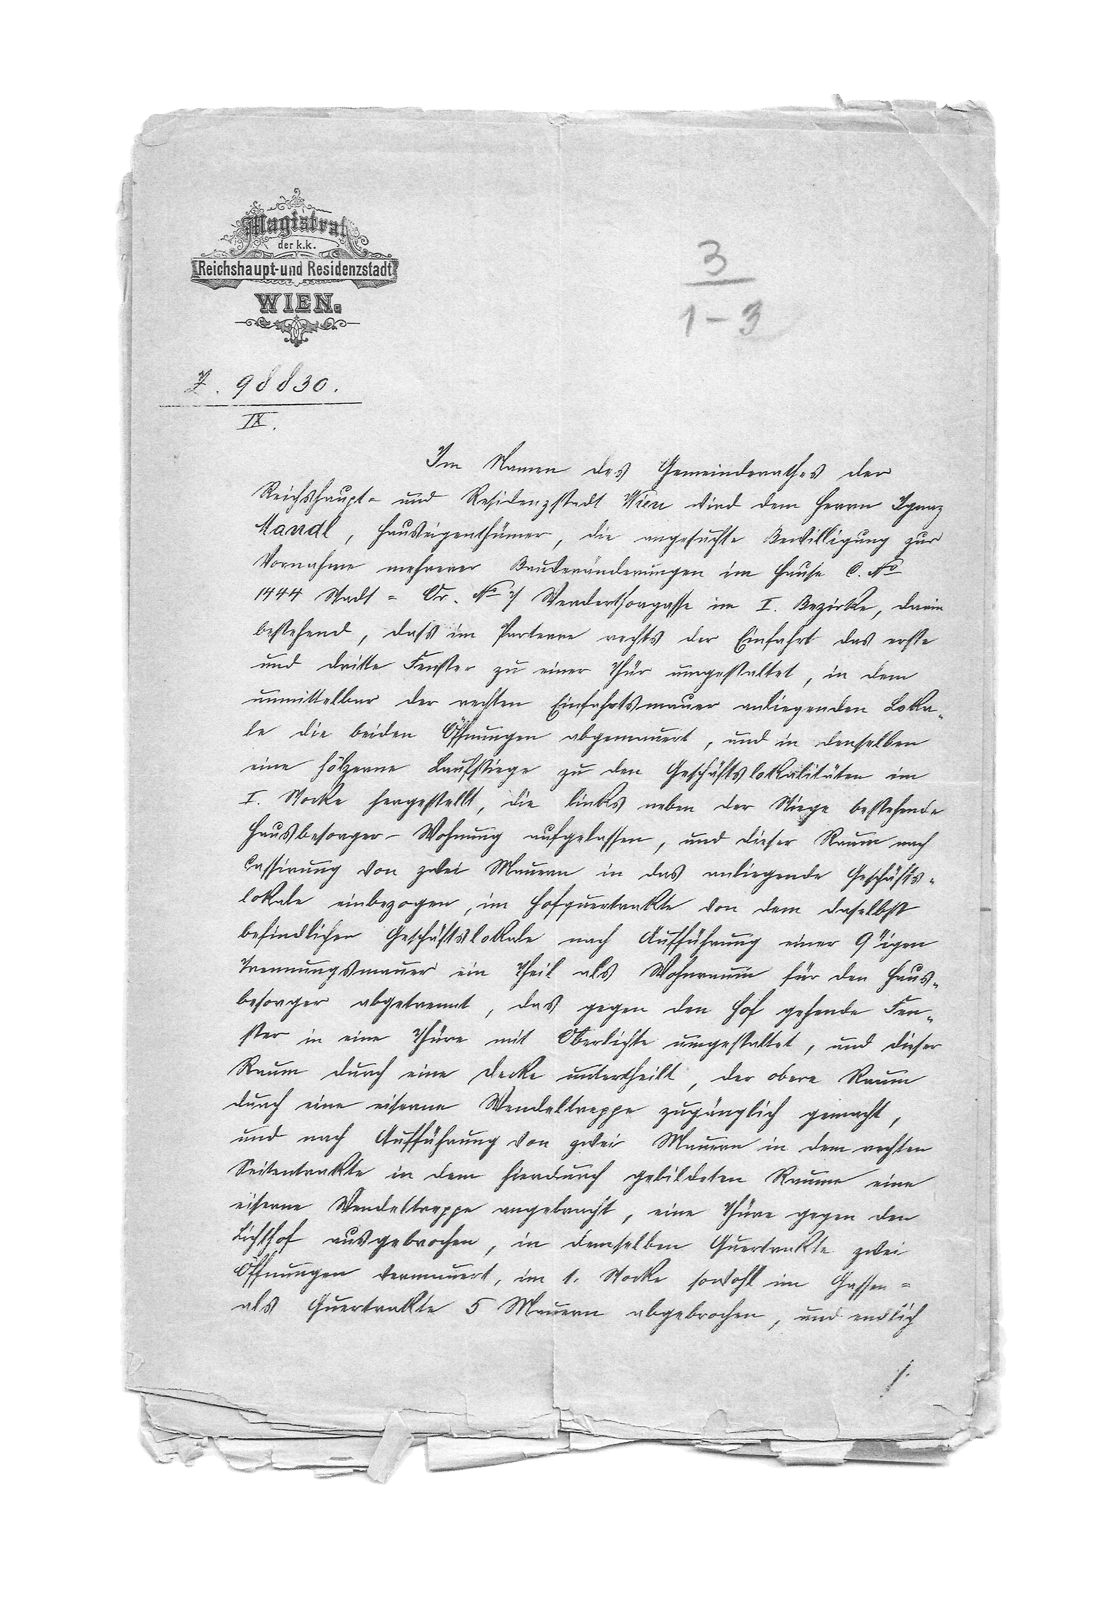 Magistrat
der k.k.
Reichshaupt-und Residenzstadt
WIEN.
3
1-3
Z. 98830.
IX.
Im Namen des Gemeinderathes der
Reichshaupt- und Residenzstadt Wien wird dem Herrn Ignaz
Mandl, Hauseigenthümer, die angesuchte Bewilligung zur
Vornahme mehrerer Bauveränderungen im Hause C. No
1444 Stadt - Or. No 7 Werderthorgasse im I. Bezirke, darin
bestehend, daß im Parterre rechts der Einfahrt das erste
und dritte Fenster zu einer Thür umgestaltet, in dem
unmittelbar der rechten Einfahrtsmauer anliegenden Loka-
le die beiden Öffnungen abgemauert, und in denselben
eine hölzerne Laufstiege zu den Geschäftslokalitäten im
I. Stocke hergestellt, die links neben der Stiege bestehende
Hausbesorger-Wohnung aufgelassen, und dieser Raum nach
Cassirung von zwei Mauern in das anliegende Geschäfts-
lokale einbezogen, im Hofquertrakte von dem daselbst
befindlichen Geschäftslokale nach Aufführung einer 9"igen
Trennungsmauer ein Theil als Wohnraum für den Haus-
besorger abgetrennt, das gegen den Hof gehende Fen-
ster in eine Thüre mit Oberlichte umgestaltet, und dieser
Raum durch eine Decke untertheilt, der obere Raum
durch eine eiserne Wendeltreppe zugänglich gemacht,
und nach Aufführung von zwei Mauern in dem rechten
Seitentrakte in dem hierdurch gebildeten Raume eine
eiserne Wendeltreppe angebracht, eine Thüre gegen den
Lichthof ausgebrochen, in demselben Quertrakte zwei
Öffnungen vermauert, im 1. Stocke sowohl im Gassen-
als Quertrakte 5 Mauern abgebrochen, und endlich